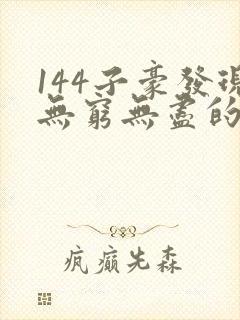 144子豪發現
無窮無盡的
瘋癲先森